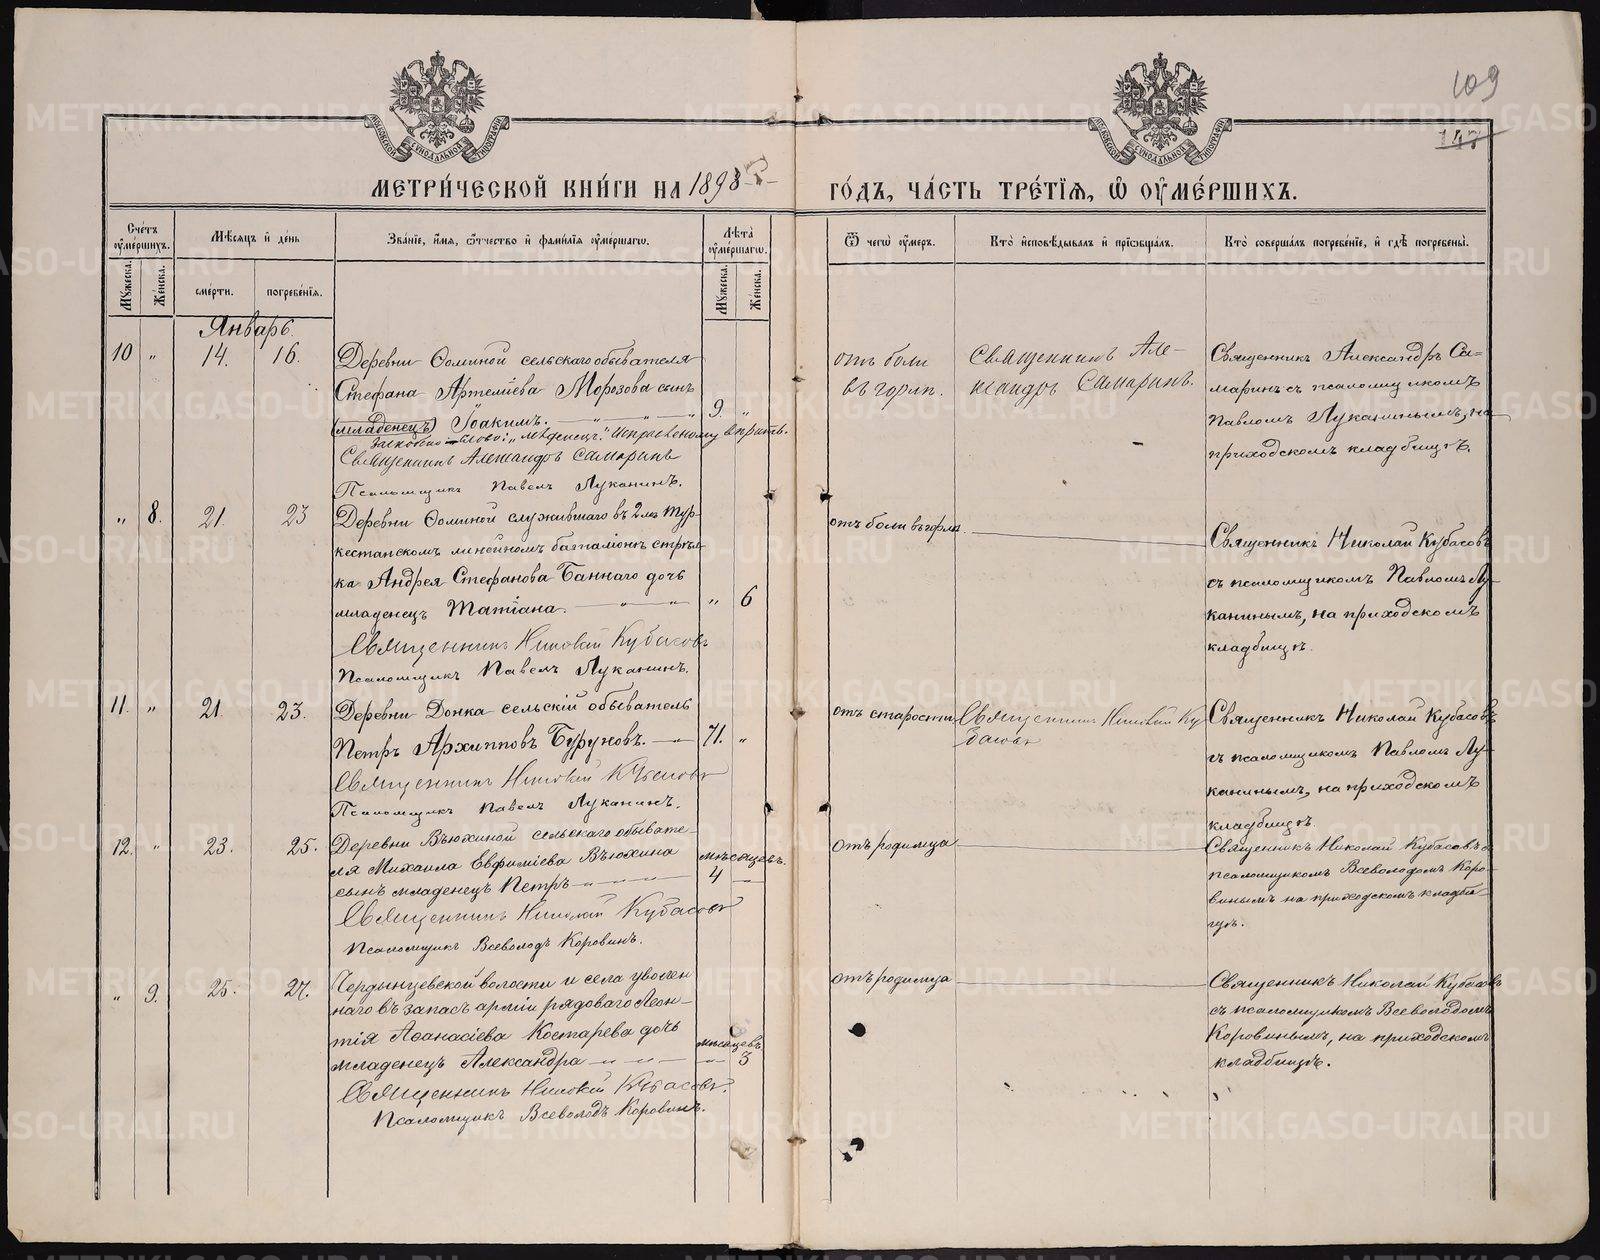 109
147
МОСКОВСКОЙ СѴНОДАЛЬНОЙ ТИПОГРАФІИ
МОСКОВСКОЙ СѴНОДАЛЬНОЙ ТИПОГРАФІИ
МЕТРИ́ЧЕСКОЙ КНИ́ГИ НА 1898
ГО́ДЪ, ЧА́СТЬ ТРЕ́ТІѦ, Ѡ҆ ОУ҆МЕ́РШИХЪ.
Сче́тъ оу҆ме́ршихъ.
Мѹжеска.
Же́нска.
Мѣсѧцъ и҆ де́нь
сме́рти.
погребе́нїѧ.
Зва́нїе, и҆́мѧ, ѻ҆́тчество и҆ фамилїѧ оу҆ме́ршагѡ.
Лѣ́та оу҆ме́ршагѡ.
Мѹжеска.
Же́нска.
Ѿ чегѡ̀ оу҆́меръ.
Кто̀ и҆сповѣ́дывалъ и҆ прїѡбща́лъ.
Кто̀ соверша́лъ погребе́нїе, и҆ гдѣ̀ погребены̀.
Январь
10 „ 14. 16. Деревни Ѳоминой сельскаго обывателя
Стефана Артеміева Морозова сынъ
(младенецъ) Іоакимъ. — „ — „ 9. „
Зачеркнутое слово: „младенецъ“
Священникъ Александръ Самаринъ
Псаломщикъ Павелъ Луканинъ.
отъ боли
въ горлѣ.
Священникъ Але-
ксандръ Самаринъ.
Священникъ Александръ Са-
маринъ съ псаломщикомъ
Павломъ Луканинымъ, на
приходскомъ кладбищѣ.
„ 8. 21. 23 Деревни Ѳоминой служившаго въ 2мъ Тур-
кестанскомъ линейномъ баталіонѣ стрѣл-
ка Андрея Стефанова Баннаго дочь
младенецъ Татіана. — „ — „ — „ 6
Священникъ Николай Кубасовъ
Псаломщикъ Павелъ Луканинъ.
отъ боли въ горлѣ
Священникъ Николай Кубасовъ
съ псаломщикомъ Павломъ Лу-
канинымъ, на приходскомъ
кладбищѣ.
11. „ 21. 23. Деревни Донка сельскій обыватель
Петръ Архипповъ Буруновъ. — „ 71. „
Священникъ Николай Кубасовъ
Псаломщикъ Павелъ Луканинъ.
отъ старости
Священникъ Николай Ку-
басовъ
Священникъ Николай Кубасовъ
съ псаломщикомъ Павломъ Лу-
канинымъ, на приходскомъ
кладбищѣ.
12. „ 23. 25. Деревни Вьюхиной сельскаго обывате-
ля Михаила Евфиміева Вьюхина мѣсяцевъ.
сынъ младенецъ Петръ — „ — „ — „ 4 —
Священникъ Николай Кубасовъ
Псаломщикъ Всеволодъ Коровинъ.
отъ родимца
Священникъ Николай Кубасовъ съ
псаломщикомъ Всеволодомъ Коро-
винымъ на приходскомъ кладби-
щѣ.
„ 9. 25. 27. Чердынцевской волости и села уволен
наго въ запасъ арміи рядоваго Леон-
тія Аѳанасіева Костарева дочь мѣсяцевъ
младенецъ Александра — „ — „ — „ 3
Священникъ Николай Кубасовъ.
Псаломщикъ Всеволодъ Коровинъ.
отъ родимца
Священникъ Николай Кубасовъ
съ псаломщикомъ Всеволодомъ
Коровинымъ, на приходскомъ
кладбищѣ.
METRIKI.GASO-URAL.RU